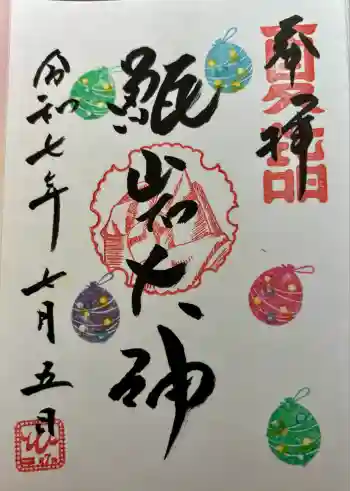 奉拝
夏詣
甑岩大神
令和七年七月五日